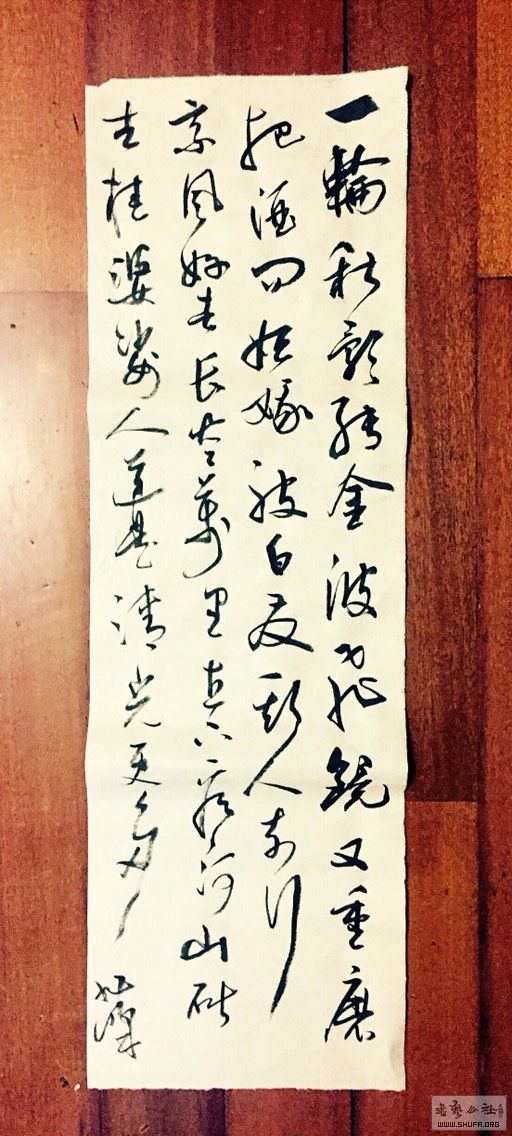 一輪秋影轉金波飛鏡又重磨
把酒问姮娥被白发欺人奈何
乘风好去长空萬里直下看河山斫
去桂婆娑人道是清光更多
書藝公社
WWW.SHUFA.ORG